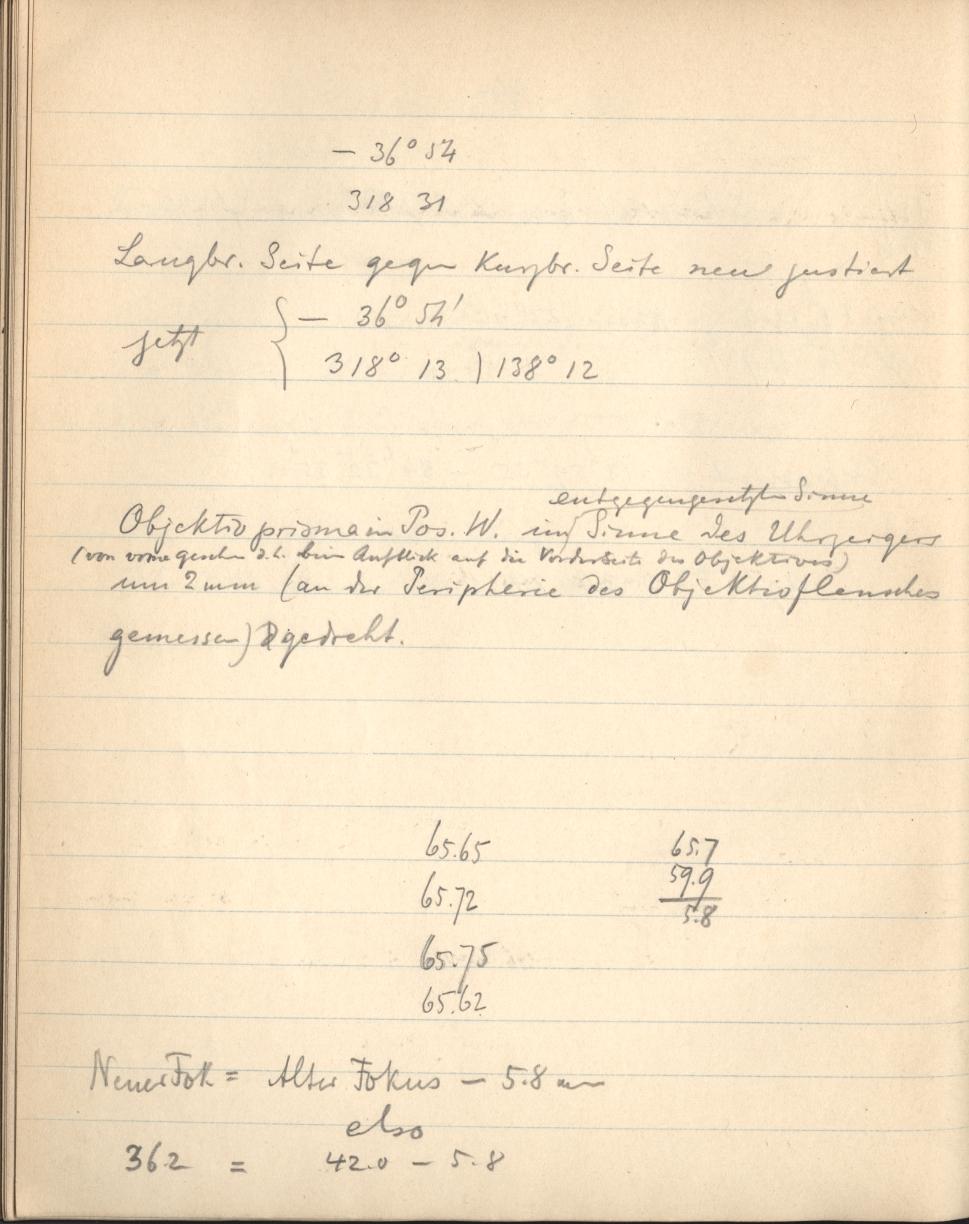 − 36° 54
318 31
Langbr. Seite gegen Kurzbr. Seite neu justiert
− 36° 54'
jetzt
318° 13 ) 138° 12
entgegengesetzten Sinne
Objektivprisma in Pos. W. im Sinne des Uhrzeigers
(von vorne gesehen d.h. beim Aufblick auf die Vorderseite des Objektives)
um 2 mm (an der Peripherie des Objektivflansches
gemessen) gedreht.
65.65 65.7
59.9
65.72 5.8
65.75
65.62
Neuer Fok = Alter Fokus − 5.8 mm
also
36.2 = 42.0 − 5.8